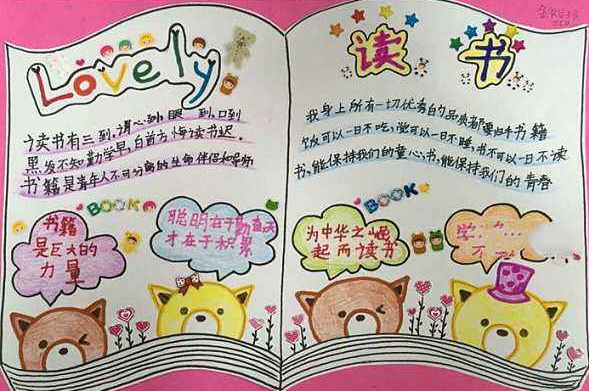 Lovely
读书有三到,谓心到,眼到,口到
黑发不知勤学早,白首方悔读书迟.
书籍是青年人不可分离的生命伴侣和导师
BOOK
书籍
是巨大的
力量
聪明在于勤奋天
才在于积累
读书
我身上所有一切优秀的品质都要归于书籍
饭可以一日不吃,觉可以一日不睡,书不可以一日不读
书,能保持我们的童心;书,能保持我们的青春
BOOK
为中华之崛
起而读书
学